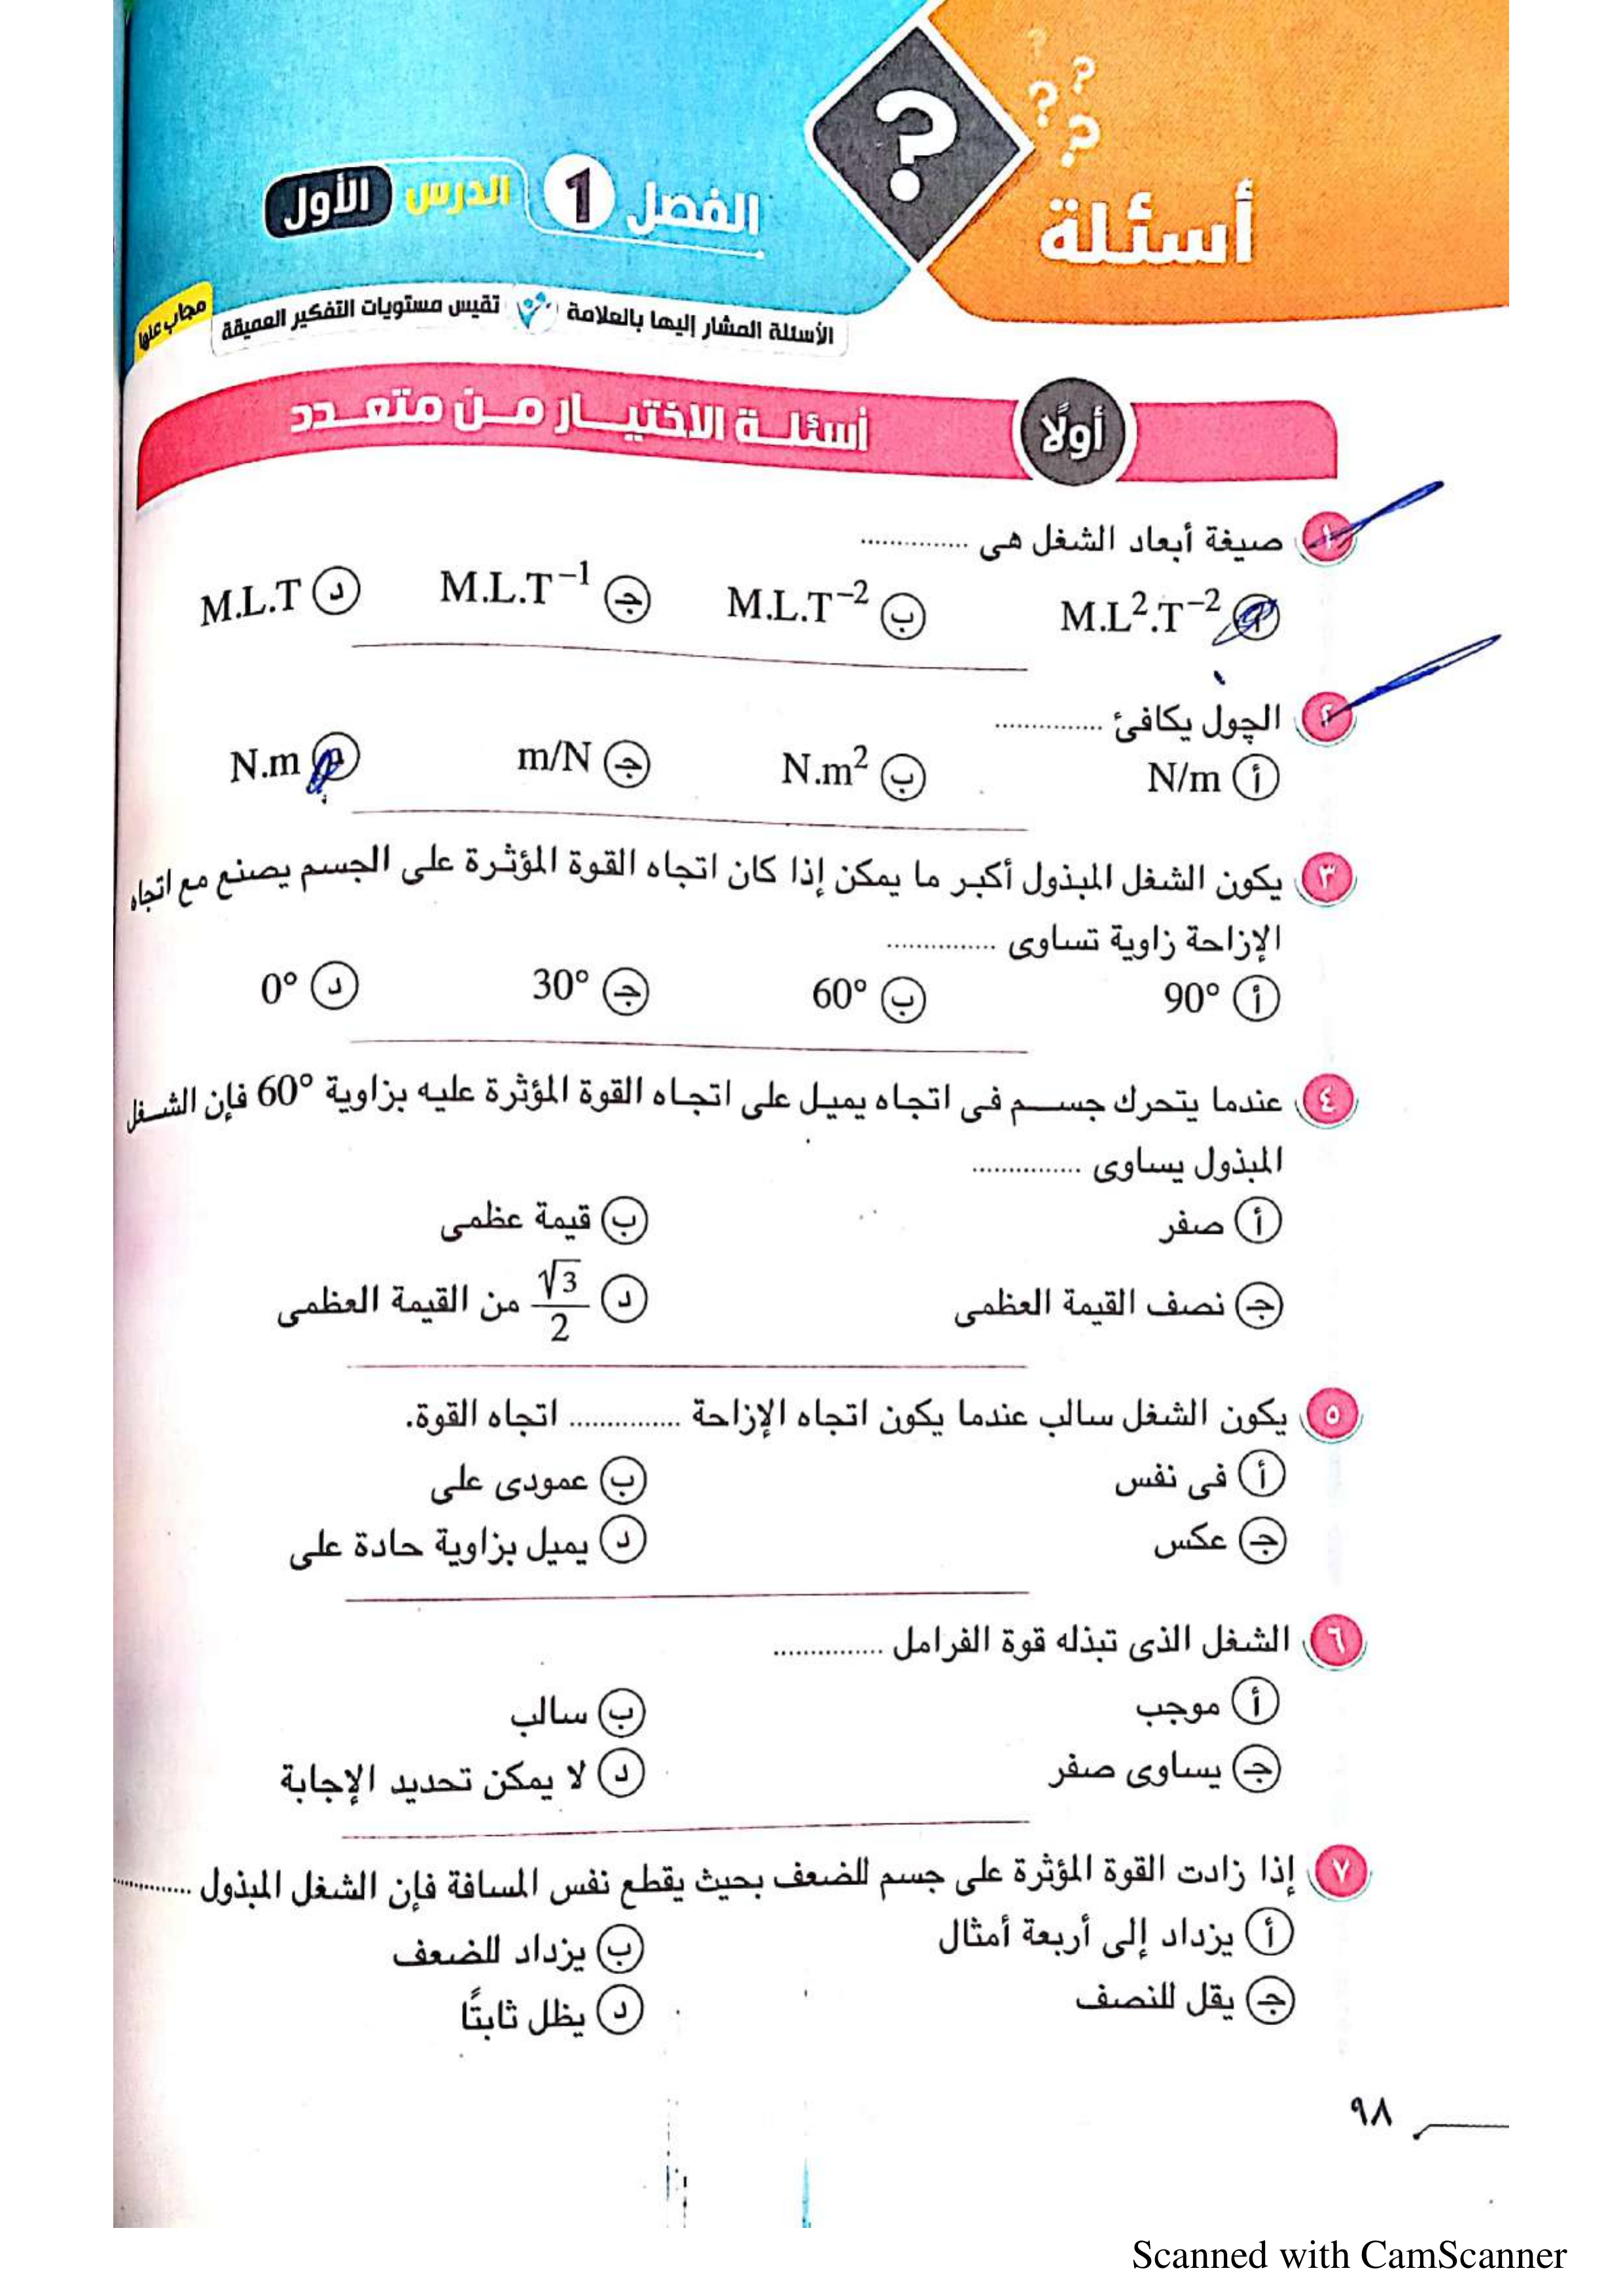 أسئلة
الفصل 1 الدرس الأول
الأسئلة المشار إليها بالعلامة تقيس مستويات التفكير العميقة
مجاب عنها
أولًا أسئلة الاختيار من متعدد
١ صيغة أبعاد الشغل هى ...............
أ M.L².T⁻² ب M.L.T⁻² ج M.L.T⁻¹ د M.L.T
٢ الچول يكافئ ...............
أ N/m ب N.m² ج m/N د N.m
٣ يكون الشغل المبذول أكبر ما يمكن إذا كان اتجاه القوة المؤثرة على الجسم يصنع مع اتجاه
الإزاحة زاوية تساوى ...............
أ 90° ب 60° ج 30° د 0°
٤ عندما يتحرك جسم فى اتجاه يميل على اتجاه القوة المؤثرة عليه بزاوية 60° فإن الشغل
المبذول يساوى ...............
أ صفر ب قيمة عظمى
ج نصف القيمة العظمى د √3/2 من القيمة العظمى
٥ يكون الشغل سالب عندما يكون اتجاه الإزاحة ............... اتجاه القوة.
أ فى نفس ب عمودى على
ج عكس د يميل بزاوية حادة على
٦ الشغل الذى تبذله قوة الفرامل ...............
أ موجب ب سالب
ج يساوى صفر د لا يمكن تحديد الإجابة
٧ إذا زادت القوة المؤثرة على جسم للضعف بحيث يقطع نفس المسافة فإن الشغل المبذول ...............
أ يزداد إلى أربعة أمثال ب يزداد للضعف
ج يقل للنصف د يظل ثابتًا
٩٨
Scanned with CamScanner